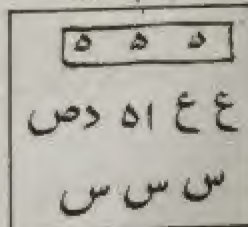 د ه ه
ع ع اه دص
س س س